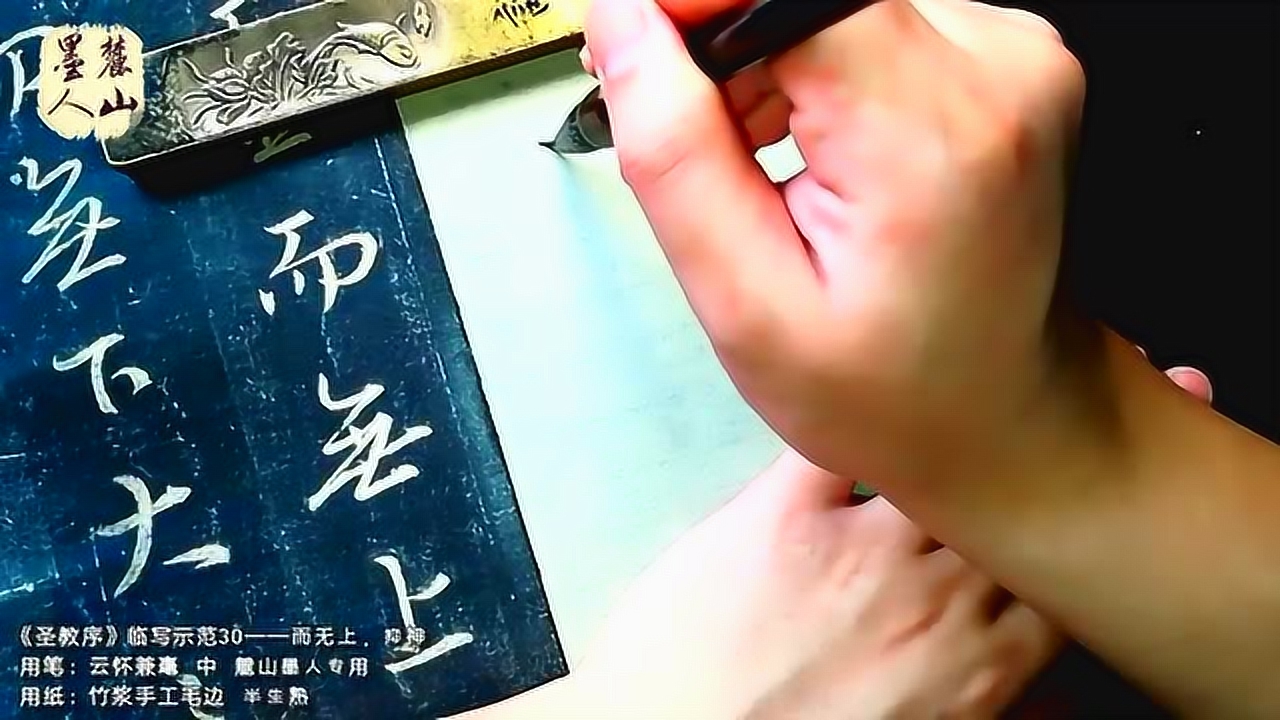 麓山
墨人
而無上
無下大
《圣教序》临写示范30——而无上,抑神
用笔:云怀兼毫 中 麓山墨人专用
用纸:竹浆手工毛边 半生熟